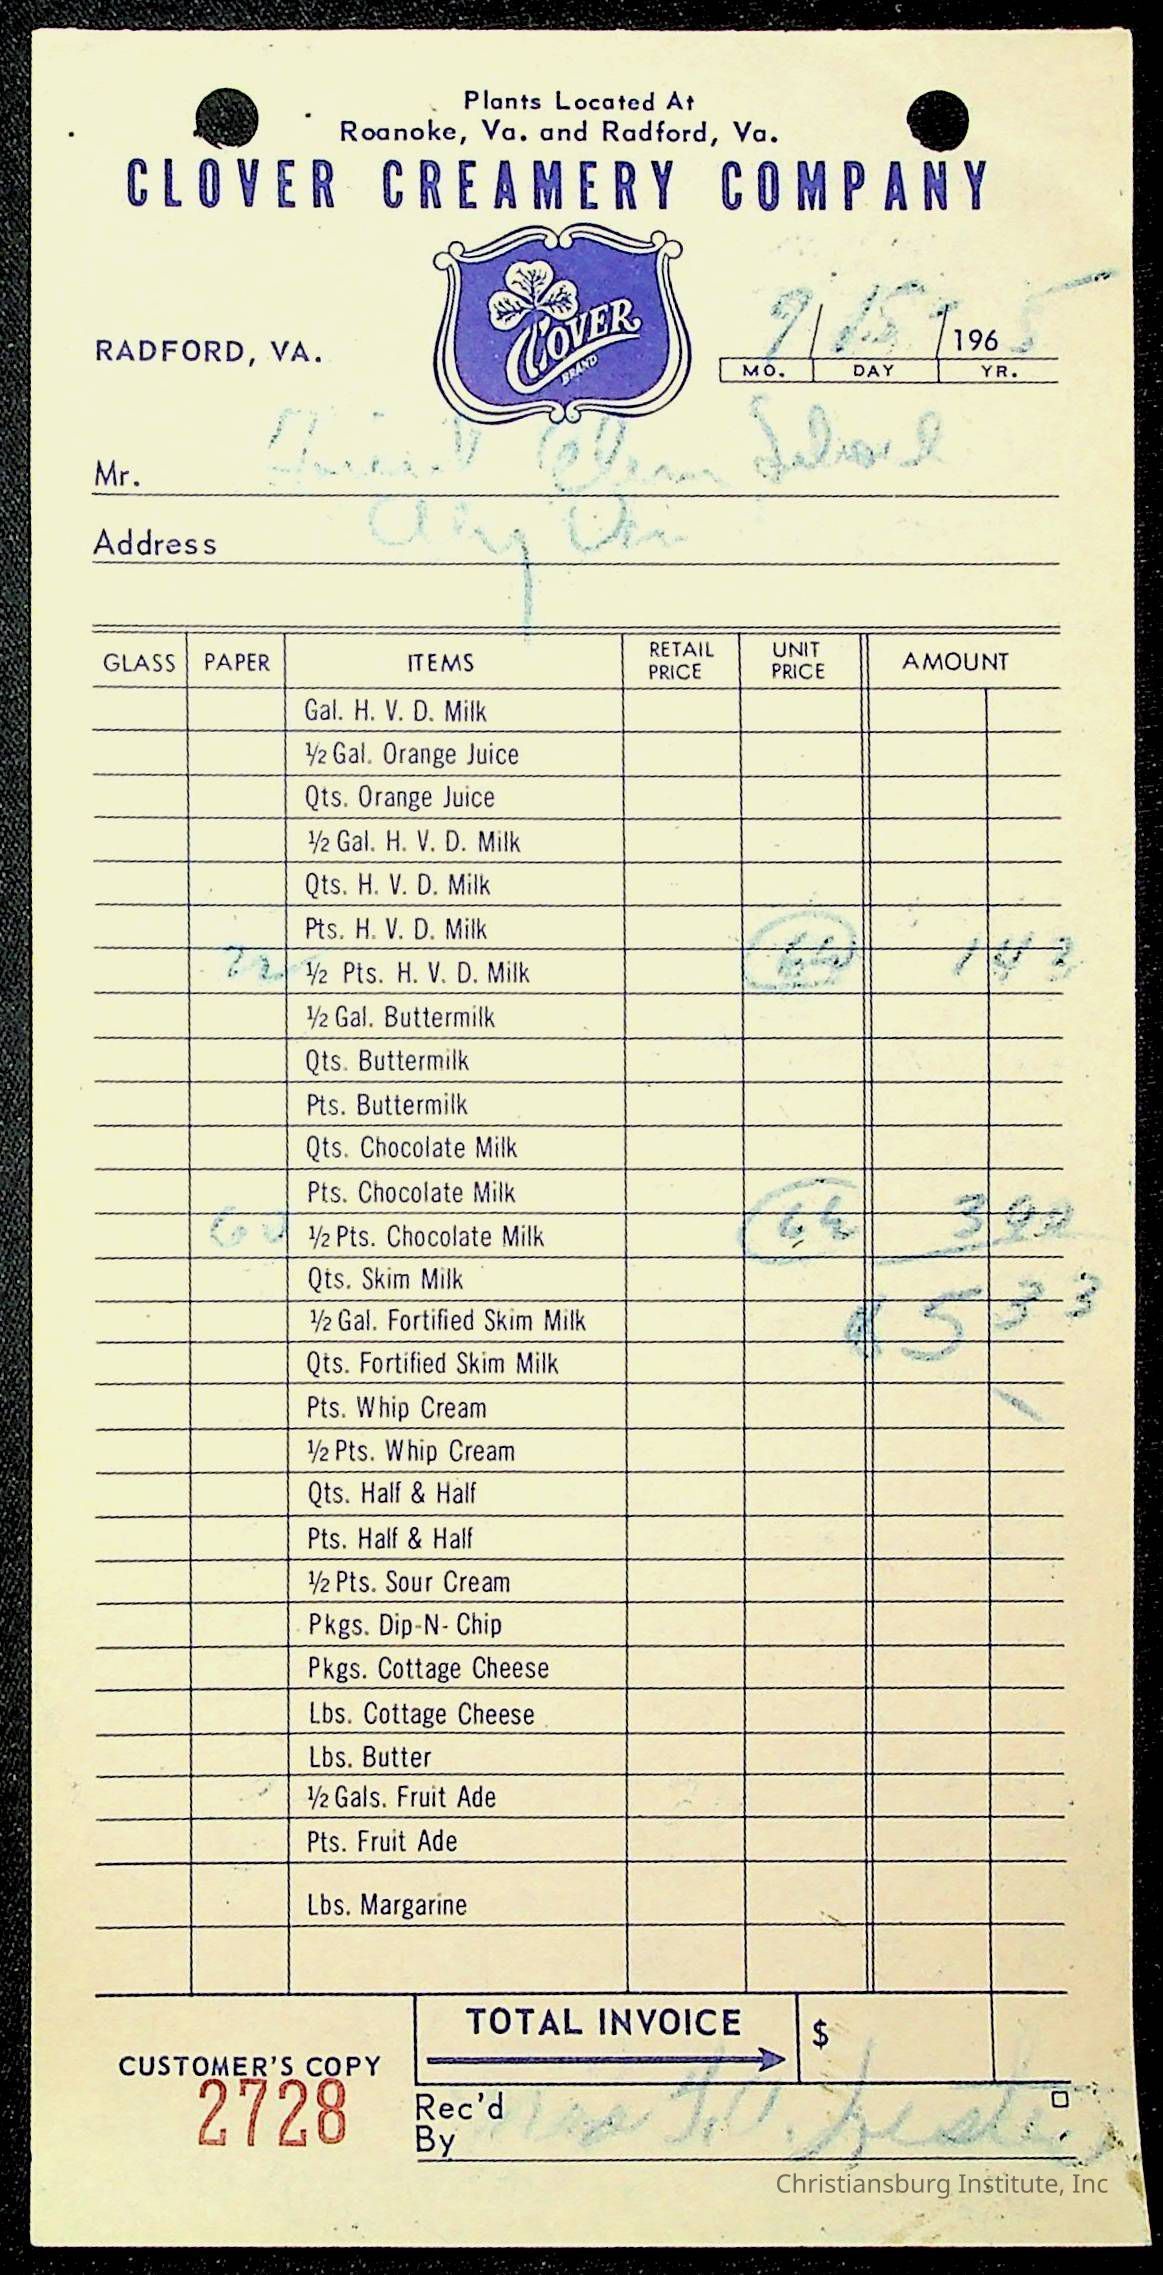 Plants Located At
Roanoke, Va. and Radford, Va.
CLOVER CREAMERY COMPANY
CLOVER
BRAND
RADFORD, VA.
9/15/1965
MO. DAY YR.
Mr. School
Address
GLASS PAPER ITEMS RETAIL PRICE UNIT PRICE AMOUNT
Gal. H. V. D. Milk
½ Gal. Orange Juice
Qts. Orange Juice
½ Gal. H. V. D. Milk
Qts. H. V. D. Milk
Pts. H. V. D. Milk
22 ½ Pts. H. V. D. Milk 6½ 1 43
½ Gal. Buttermilk
Qts. Buttermilk
Pts. Buttermilk
Qts. Chocolate Milk
Pts. Chocolate Milk
60 ½ Pts. Chocolate Milk 6½ 3 90
Qts. Skim Milk
½ Gal. Fortified Skim Milk 5 33
Qts. Fortified Skim Milk
Pts. Whip Cream
½ Pts. Whip Cream
Qts. Half & Half
Pts. Half & Half
½ Pts. Sour Cream
Pkgs. Dip-N-Chip
Pkgs. Cottage Cheese
Lbs. Cottage Cheese
Lbs. Butter
½ Gals. Fruit Ade
Pts. Fruit Ade
Lbs. Margarine
TOTAL INVOICE $
CUSTOMER'S COPY
2728
Rec'd
By
Christiansburg Institute, Inc